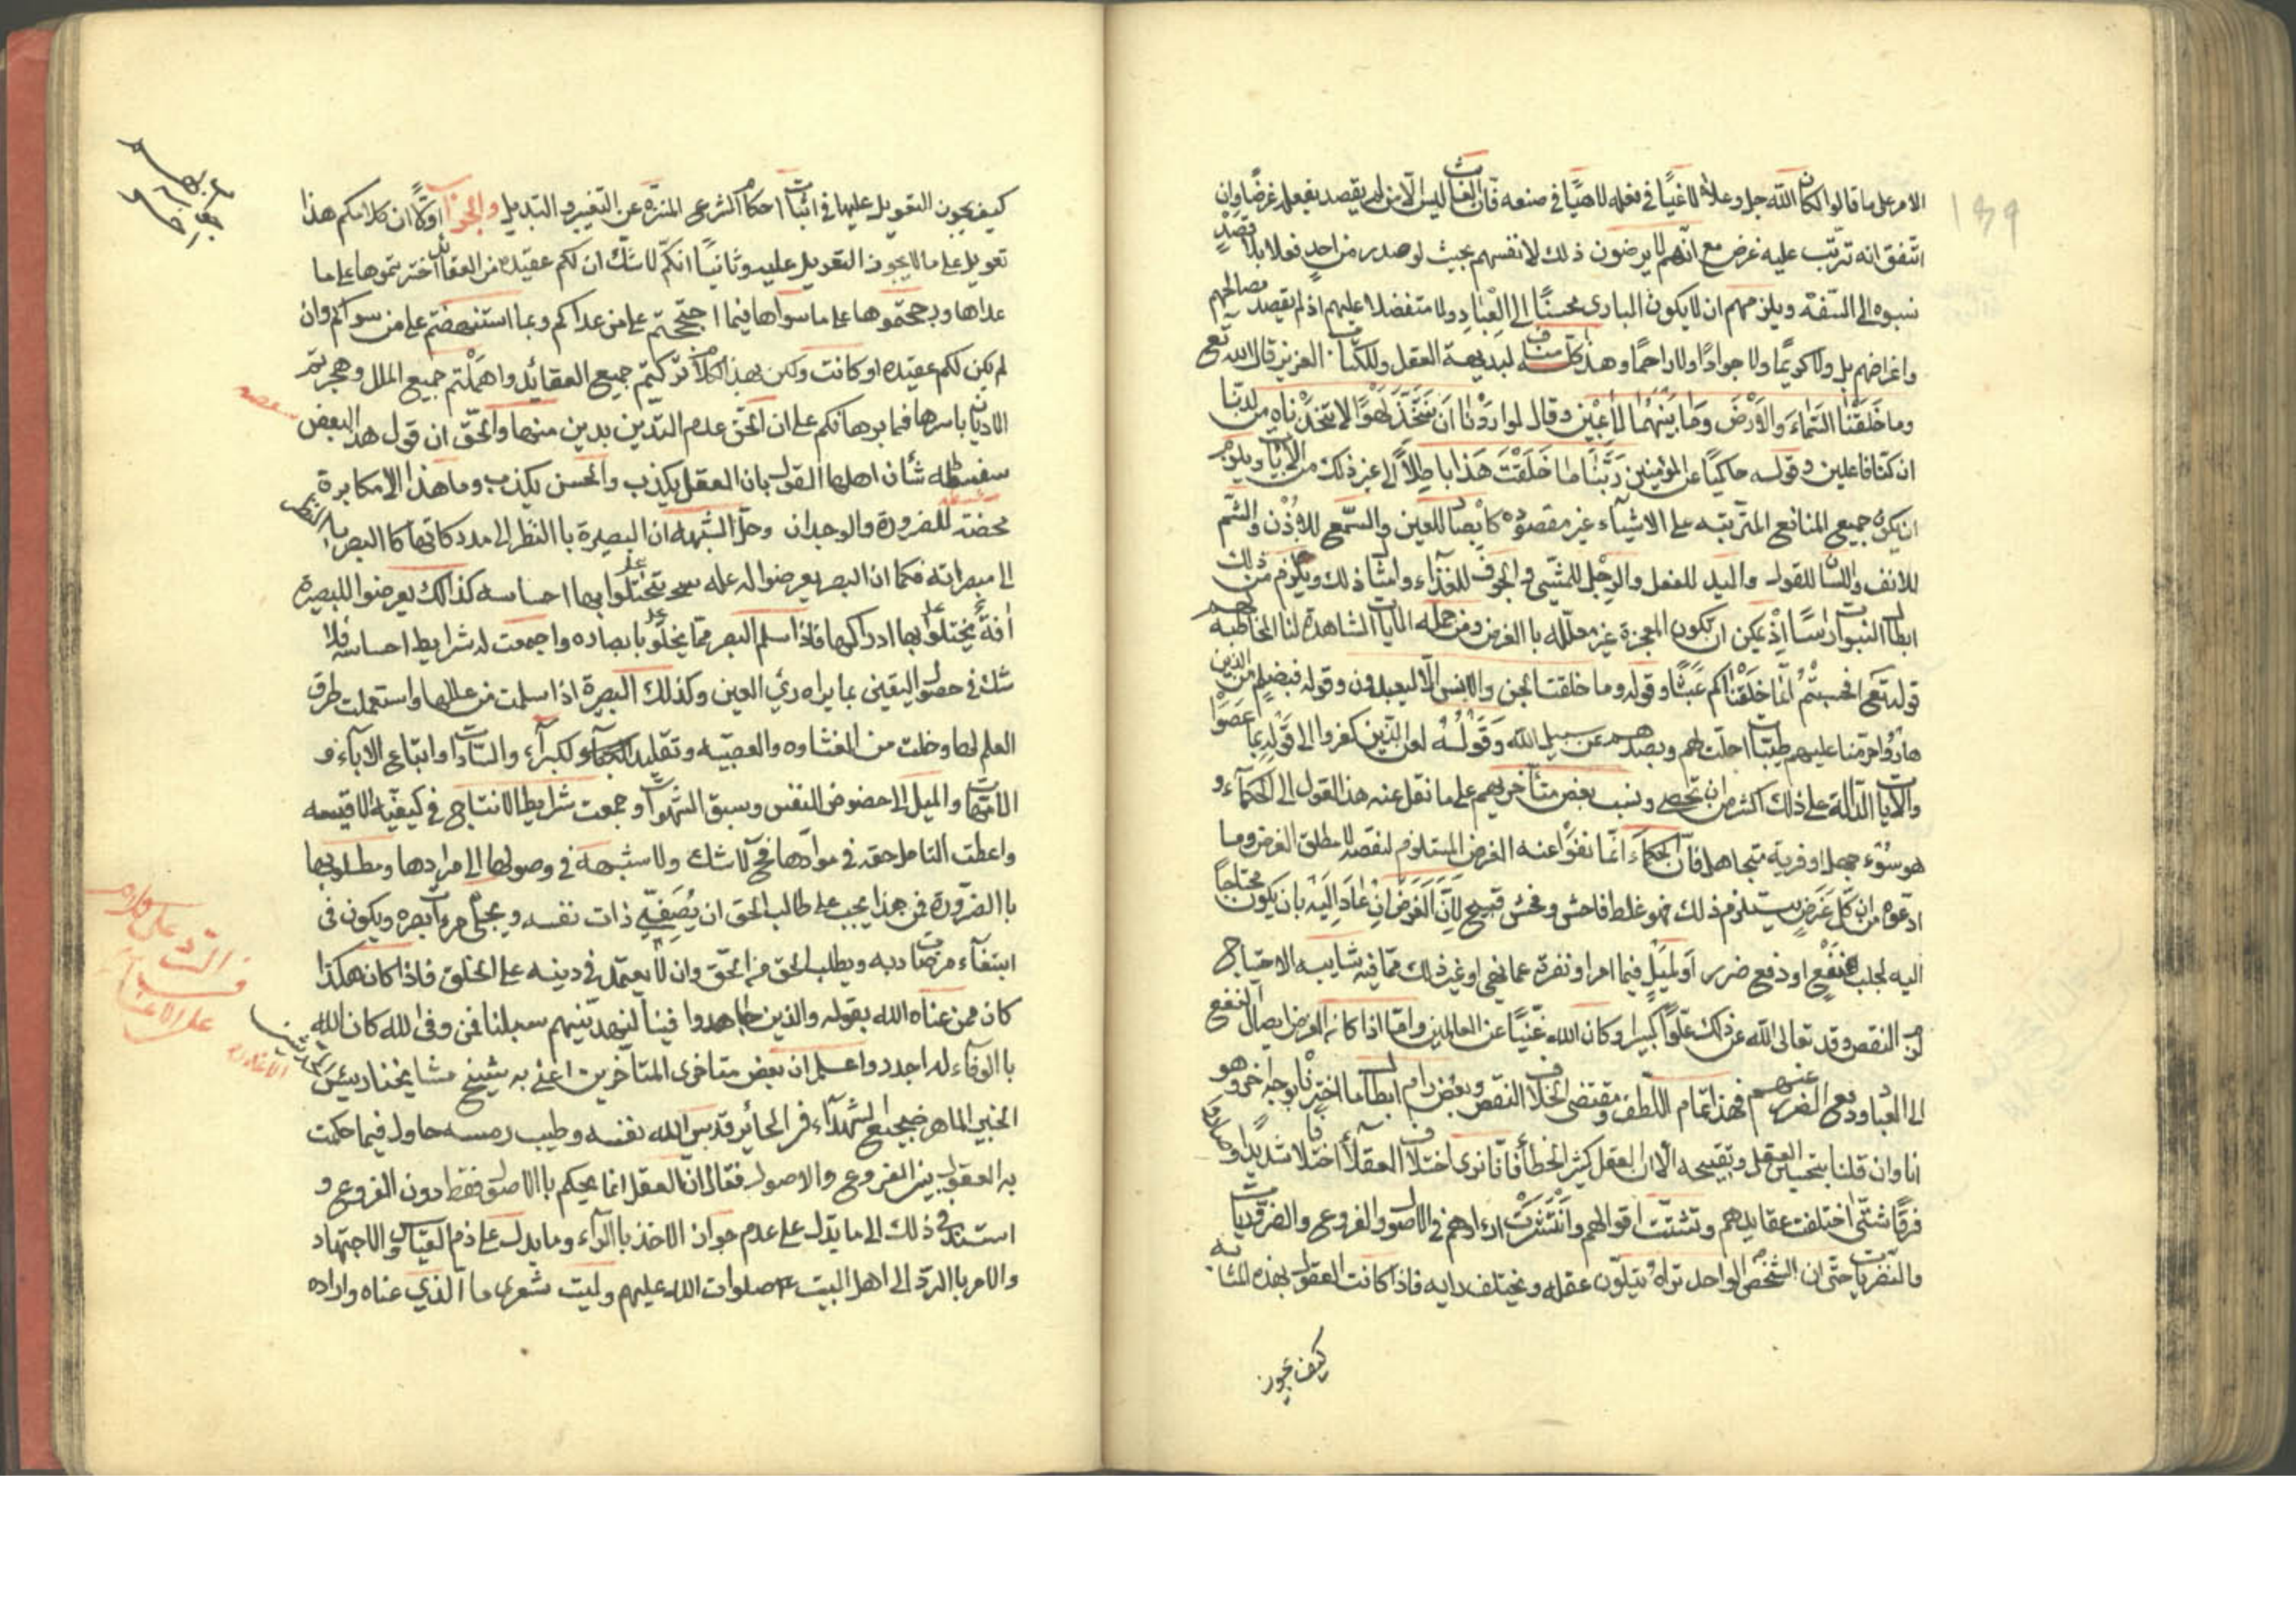 الامر على ما قالوا لكان الله جل وعلا لاغيًا في فعله لاهيًا في صنعه فان العابث ليس الا من لم يقصد بفعله غرضًا وان
اتفق انه ترتب عليه غرض مع انهم لا يرضون ذلك لانفسهم بحيث لو صدر من احدٍ فعلا بلا قصدٍ
نسبوه الى السفه ويلزمهم ان لا يكون البارى محسنًا الى العباد ولا متفضلا عليهم اذ لم يقصد مصالحهم
واغراضهم بل ولا كريمًا ولا جوادًا ولا راحمًا وهذا كله مناف لبديهة العقل وللكتاب العزيز قال الله تع
وما خَلَقْنَا السَّمَاءَ وَالْاَرْضَ وَمَا بَيْنَهُمَا لَاعِبِيْن وقال لو اردْنَا اَن نَتَّخِذَ لَهْوًا لاتخذناه من لدنّا
ان كنّا فاعلين وقوله حاكيًا عن المؤمنين رَبَّنَا مَا خَلَقْتَ هَذَا بَاطِلًا الى غير ذلك من الايات ويلزم
ان يكون جميع المنافع المترتبه على الاشياء غير مقصوده كالابصار للعين والسّمع للاُذُن والشم
للانف واللسان للقول واليد للفعل والرجل للمشى والجوف للغذاء وامثال ذلك ويلزم من ذلك
ابطال النبوات راسًا اِذْ يمكن ان تكون المعجزة غير معلّله با الغرض ومن جمله الايات الشاهدة لنا المخاطبه لهم
قوله تع افحسبتُمْ انّما خَلَقْنَاكم عَبَثًا وقوله وما خلقت الجن والانس الّا ليعبدون وقوله فبظلم من الذين
هادُوا حرّمنا عليهم طيبات احلت لهم وبصدّهم عن سبيل الله وَقَوْلُهُ لعن الذين كفروا الى قوله بما عَصَوْا
والآيات الدالة على ذلك اكثر من ان تحصى ونسب بعض متأخريهم على ما نقل عنه هذا القول الى الحكمآء و
هو سوُء جهل او فرية متجاهل فانّ الحكماء انّما نفوْا عنه الغرض المستلزم لنقصه لا مطلق الغرض وما
ادعوه من ان كلّ غَرَضٍ يستلزم ذلك فهو غلط فاحش وفحش قبيح لِاَنَّ الَغَرَضَ اِنْ عَادَ اِلَيْه بان يَكُونَ محتاجًا
اليه لجلب نَفْعٍ او دفع ضرر اَو لمَيْلٍ فيما امر او نفرة عما نهى او غير ذلك ممّا فيه شايبه الاحتياج
لزم النقص وقد تعالى الله عن ذلك علوًّا كبيرا وكان الله غَنيًّا عن العالمين وامّا اذا كان الغرض ايصال النفع
الى العباد ودفع الضرر عنهم فهذا تمام اللّطف ومقتضى الخلاف النقص وبعض رام ابطال ما اخترنا بوجه اخر وهو
انا وان قلنا بتحسين العقل وتقبيحه الّا ان العقل كثير الخطأ فانا نرى اختلاف العقلآء اختلافا شديدًا وصاروا
فرقًا شتّى اختلفت عقايدهم وتشتّت اقوالهم وانْتَشَرتْ ارادهم في الاصول والفروع والضروريات
والنظريات حتّى ان الشخص الواحد تراهُ يتلوّن عقله ويختلف رايه فاذا كانت العقول بهذه المثابه
كيف يجوز
كيف يجوز التعويل عليها في اثبات احكام الشرع المنزه عن التغيير والتبديل والجواب اوّلًا ان كلامكم هذا
تعويل على ما لا يجوز التعويل عليه وثانيًا انكم لا شك ان لكم عقيدة من العقائد اخترتموها على ما
عداها ورجحتموها على ما سواها فبما احتججتم على من عداكم وبما استنهضتم على من سواكم وان
لم يكن لكم عقيده او كانت ولكن بهذا الكلام تركتم جميع العقائد واهملْتم جميع الملل وهجرتم
الاديان باسرها فما برهانكم على ان الحق عدم التدين بدين منها والحقّ ان قول هذا البعض
سفسطه شأن اهلها القول بان العقل يكذب والحسن يكذب وما هذا الا مكابرة
محضة للضرورة والوجدان وحلّ الشبهه ان البصيرة با النظر الى مدركاتها كا البصر با النظر
الى مبصراته فكما ان البصر يعرضوا له عله يختلّوا بها احساسه كذالك يعرضوا للبصيرة
افةً يختلوا بها ادراكها فاذا سلم البصر ممّا يخلّو بابصاره واجمعت له شرايط احساسه فلا
شك في حصول اليقين بما يراه رئي العين وكذلك البصيرة اذا سلمت من عللها واستعملت طرق
العلم لها وخلت من الغشاوه والعصبيّه وتقليد الكبرآء والسّادات وابتاع الابآء و
الامّهات والميل الى حضوض النفس وسبق الشهوات وجمعت شرايط الانتاج في كيفيّه الاقيسه
واعطت التامل حقه في موادّها فح لا شك ولا شبهة في وصولها الى مرادها ومطلوبها
با الضّرورة فمن هذا يجب على طالب الحق ان يُصَفّي ذات نفسه ويجلي مرءات بصره ويكون في
ابتغآء مرضات ربه ويطلب الحق من الحق وان لا يعتمد في دينه على الخلق فاذا كان هكذا
كان ممن عناه الله بقوله والذين جاهدوا فينا لنهدينّهم سبلنا فمن وفى لله كان الله
با الوفآء له اجدد واعلم ان بعض متاخرى المتأخرين اعنى به شيخ مشايخنا رئيس المحدثين
الخبير الماهر ضجيع الشهدآء في الحائر قدس الله نفسه وطيب رمسه حاول فيما حكمت
به العقول بين الفروع والاصول فقال ان العقل انما يحكم با الاصول فقط دون الفروع و
استند في ذلك الى ما يدل على عدم جواز الاخذ با الرآء وما يدل على ذم القياس والاجتهاد
والامر با الرد الى اهل البيت ع صلوات الله عليهم وليت شعرى ما الذي عناه واراده